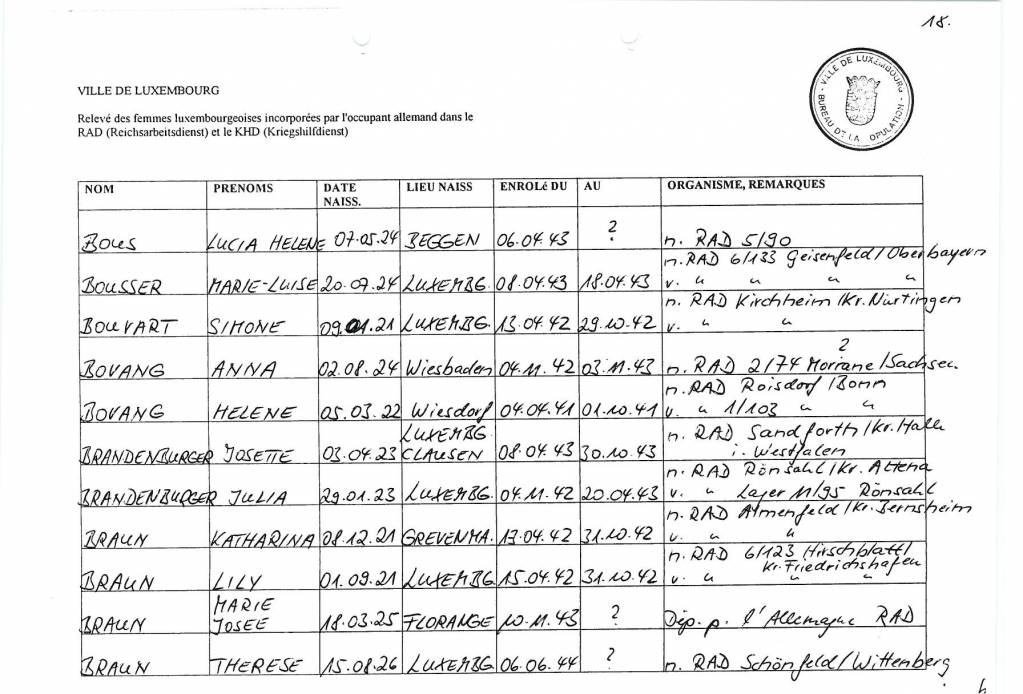 18.
VILLE DE LUXEMBOURG
VILLE DE LUXEMBOURG
BUREAU DE LA POPULATION
Relevé des femmes luxembourgeoises incorporées par l'occupant allemand dans le
RAD (Reichsarbeitsdienst) et le KHD (Kriegshilfdienst)
NOM PRENOMS DATE NAISS. LIEU NAISS ENROLé DU AU ORGANISME, REMARQUES
BOUS LUCIA HELENE 07.05.24 BEGGEN 06.04.43 ? n. RAD 5/90
n. RAD 6/133 Geisenfeld/Oberbayern
BOUSSER MARIE-LUISE 20.07.24 LUXEMBG. 08.04.43 18.04.43 v. " " "
n. RAD Kirchheim/Kr. Nürtingen
BOUVART SIMONE 09.01.21 LUXEMBG. 13.04.42 29.10.42 v. " "
?
BOVANG ANNA 02.08.24 Wiesbaden 04.11.42 03.11.43 n. RAD 2/74 /Sachsec.
n. RAD Roisdorf/Bonn
BOVANG HELENE 05.03.22 Wiesdorf 04.04.41 01.10.41 v. " 1/103 " "
LUXEMBG. n. RAD Sandforth/Kr. Halle
BRANDENBURGER JOSETTE 03.04.23 CLAUSEN 08.04.43 30.10.43 i. Westfalen
n. RAD Rönsahl/Kr. Altena
BRANDENBURGER JULIA 29.01.23 LUXEMBG. 04.11.42 20.04.43 v. " Lager 11/95 Rönsahl
n. RAD /Kr.
BRAUN KATHARINA 08.12.21 GREVENMA. 13.04.42 31.10.42 v. " "
n. RAD 6/123 Hirschblatt/
Kr. Friedrichshafen
BRAUN LILY 01.09.21 LUXEMBG 15.04.42 31.10.42 v. " " "
MARIE
BRAUN JOSEE 18.03.25 FLORANGE 10.11.43 ? Dép. p. l'Allemagne RAD
BRAUN THERESE 15.08.26 LUXEMBG 06.06.44 ? n. RAD Schönfeld/Wittenberg